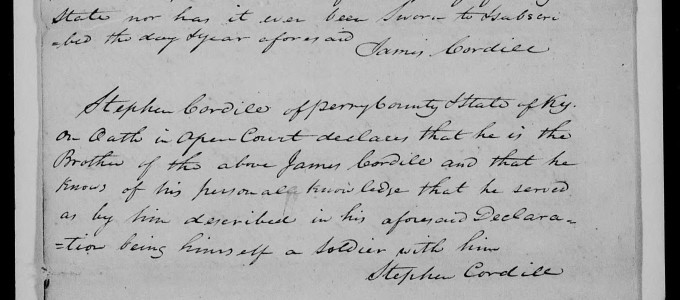 State nor has it ever been Sworn to & subscri
=bed the day & year aforesaid
James Cordill
Stephen Cordile of perry County & State of Ky.
on Oath in open Court declares that he is the
Brother of the above James Cordile and that he
knows of his personal knowledge that he served
as by him described in his aforesaid Declara=
=tion being himself a Soldier with him
Stephen Cordill